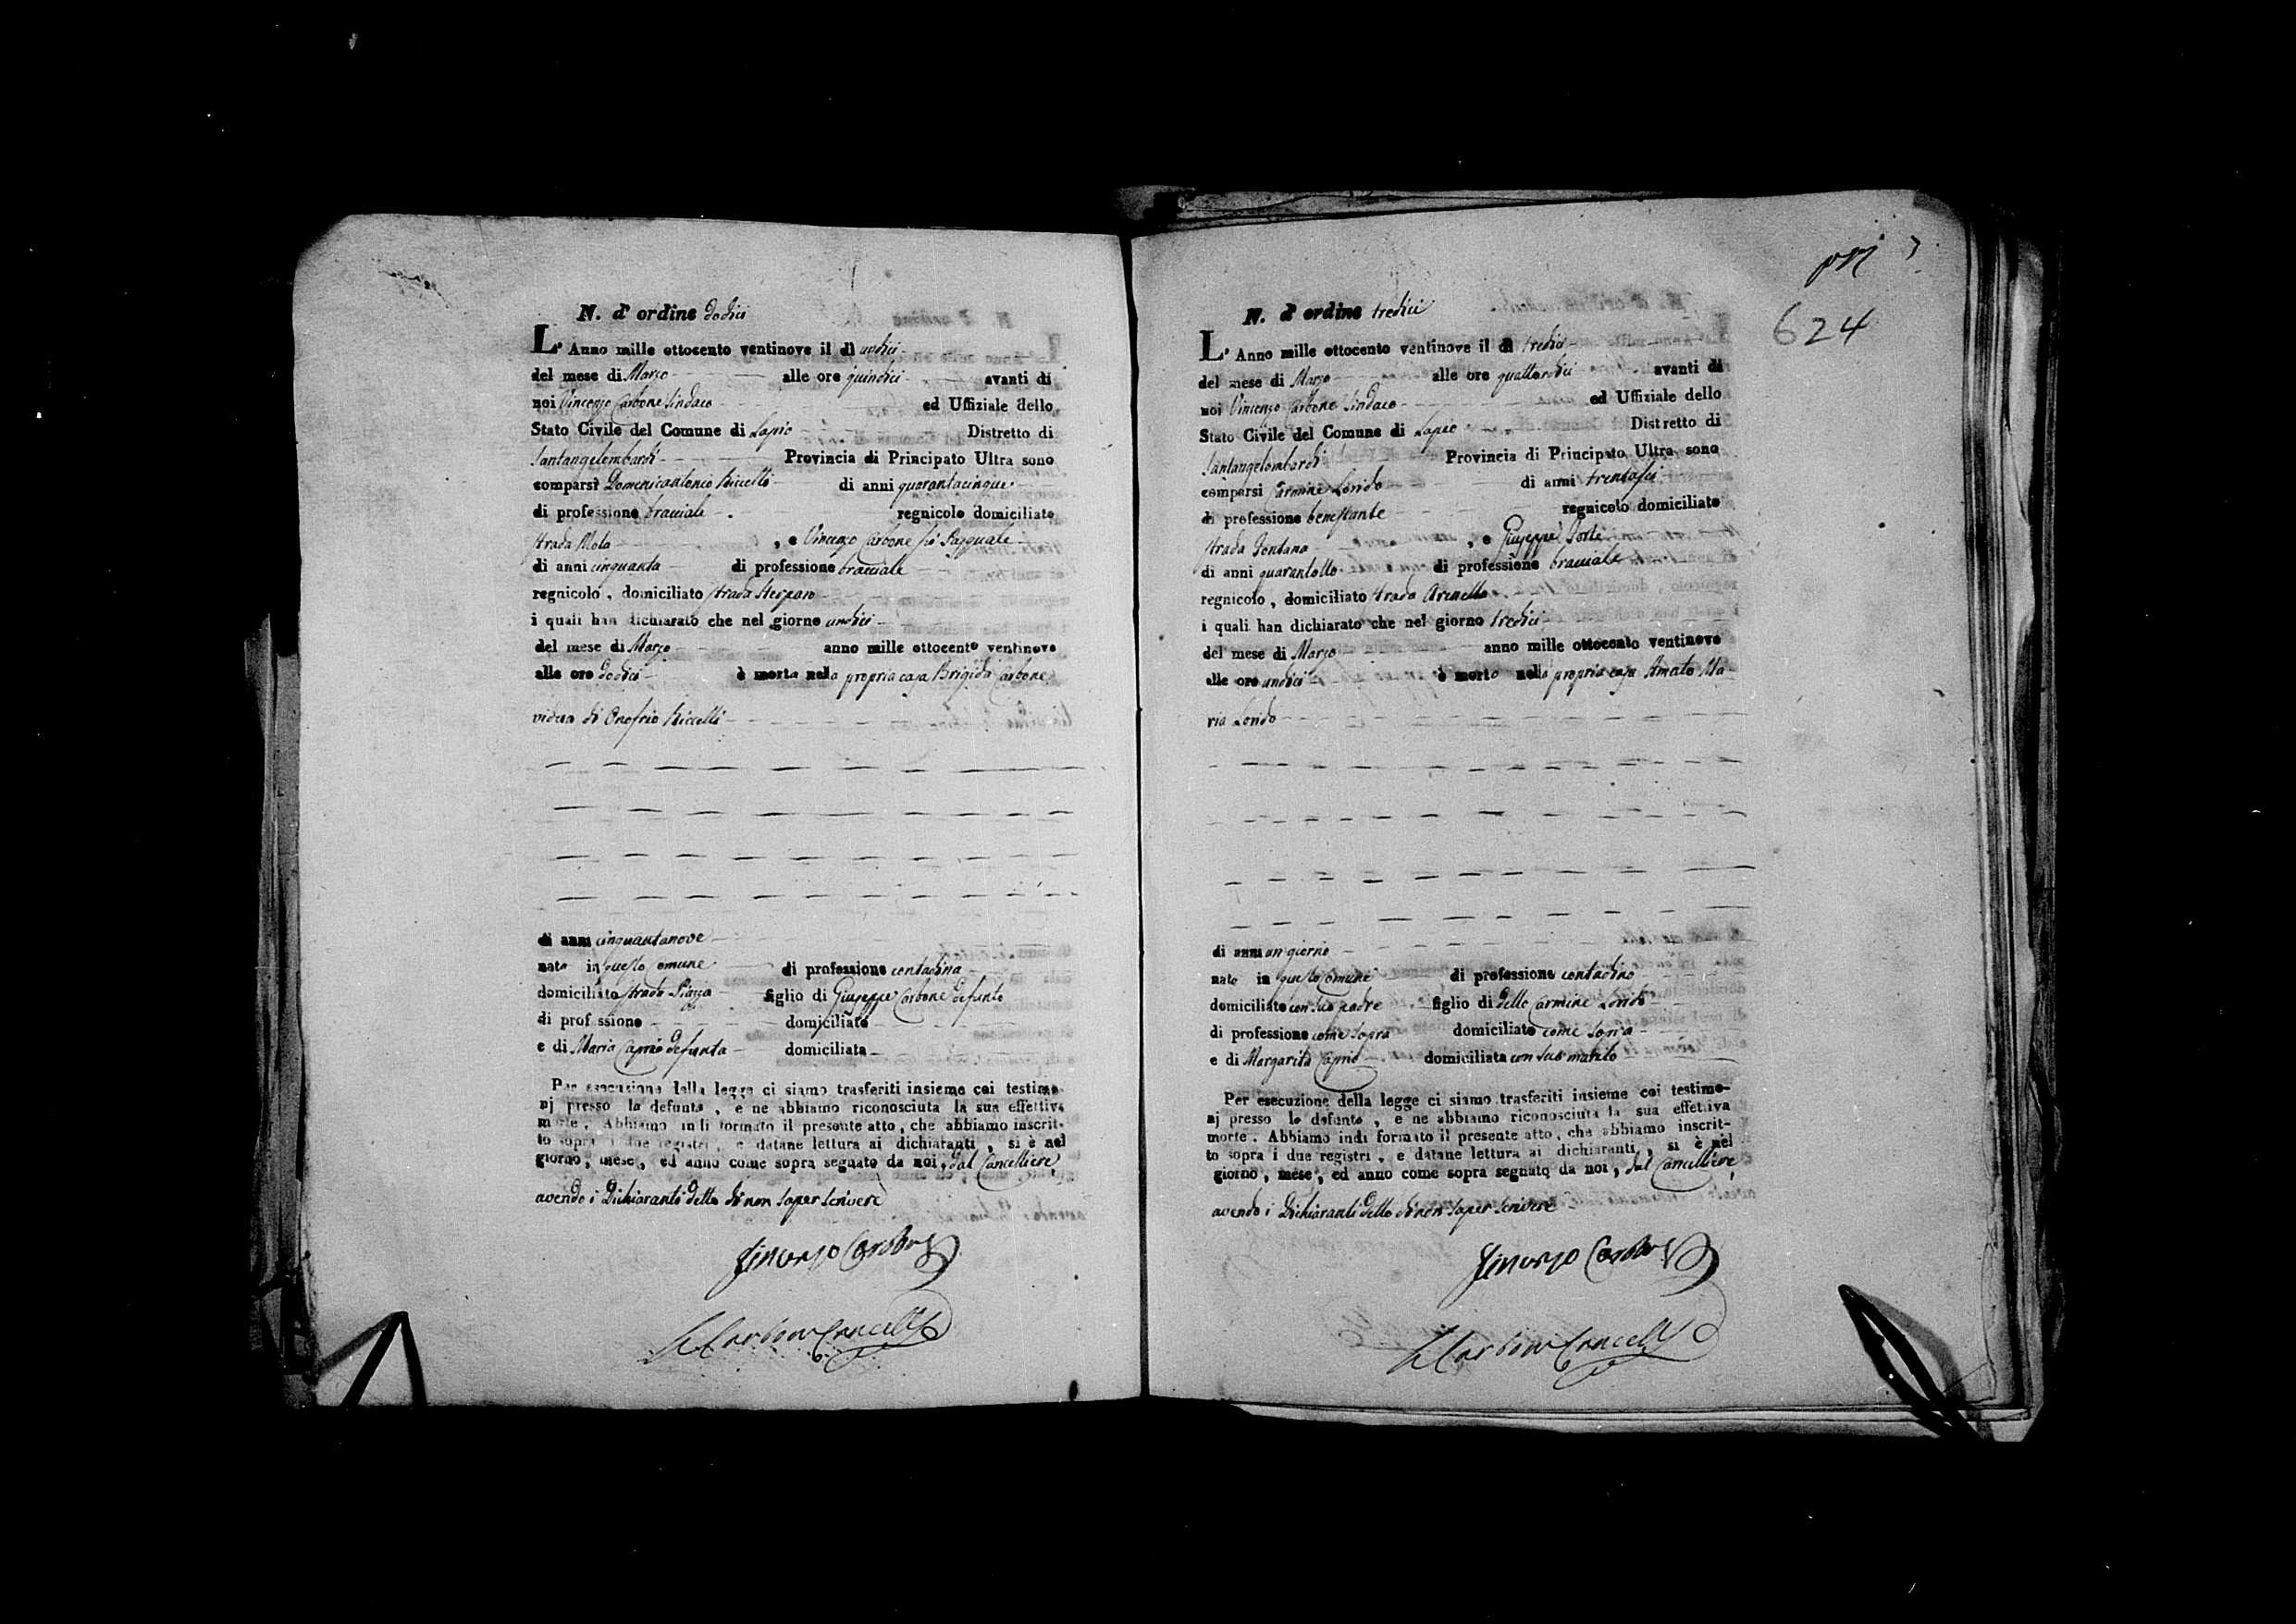 N. d'ordine dodici
L'Anno mille ottocento ventinove il dì undici
del mese di Marzo alle ore quindici avanti di
noi Vincenzo Carbone Sindaco ed Uffiziale dello
Stato Civile del Comune di Lapio Distretto di
Santangelombardi Provincia di Principato Ultra sono
comparsi Domenicantonio Riccelli di anni quarantacinque
di professione bracciale regnicolo domiciliato
strada Mola , e Vincenzo Carbone fù Pasquale
di anni cinquanta di professione bracciale
regnicolo, domiciliato strada
i quali han dichiarato che nel giorno undici
del mese di Marzo anno mille ottocento ventinove
alle ore dodici è morta nella propria casa Brigida Carbone
vidua di Onofrio Riccelli
di anni cinquantanove
nato in questo Comune di professione contadina
domiciliato strada Piazza figlio di Giuseppe Carbone defunto
di professione domiciliato
e di Maria Caprio defunta domiciliata
Per esecuzione della legge ci siamo trasferiti insieme coi testimo-
nj presso la defunta, e ne abbiamo riconosciuta la sua effettiva
morte. Abbiamo indi formato il presente atto, che abbiamo inscrit-
to sopra i due registri, e datane lettura ai dichiaranti, si è nel
giorno, mese, ed anno come sopra segnato da noi, dal Cancelliere,
avendo i Dichiaranti detto di non saper scrivere
Vincenzo Carbone
Carbone Cancell
pri
624
N. d'ordine tredici
L'Anno mille ottocento ventinove il dì tredici
del mese di Marzo alle ore quattordici avanti di
noi Vincenzo Carbone Sindaco ed Uffiziale dello
Stato Civile del Comune di Lapio Distretto di
Santangelombardi Provincia di Principato Ultra sono
comparsi Carmine Lorido di anni trentasei
di professione benestante regnicolo domiciliato
strada Fontana , e Giuseppe Forte
di anni quarantotto di professione bracciale
regnicolo, domiciliato strada Arenella
i quali han dichiarato che nel giorno tredici
del mese di Marzo anno mille ottocento ventinove
alle ore undici è morto nella propria casa Amato Ma-
ria Lorido
di anni un giorno
nato in questo Comune di professione contadino
domiciliato con suo padre figlio di detto Carmine Lorido
di professione come sopra domiciliato come sopra
e di Margarita Caprio domiciliata con suo marito
Per esecuzione della legge ci siamo trasferiti insieme coi testimo-
nj presso lo defunto, e ne abbiamo riconosciuta la sua effettiva
morte. Abbiamo indi formato il presente atto, che abbiamo inscrit-
to sopra i due registri, e datane lettura ai dichiaranti, si è nel
giorno, mese, ed anno come sopra segnato da noi, dal Cancelliere,
avendo i Dichiaranti detto di non saper scrivere
Vincenzo Carbone
Carbone Cancell